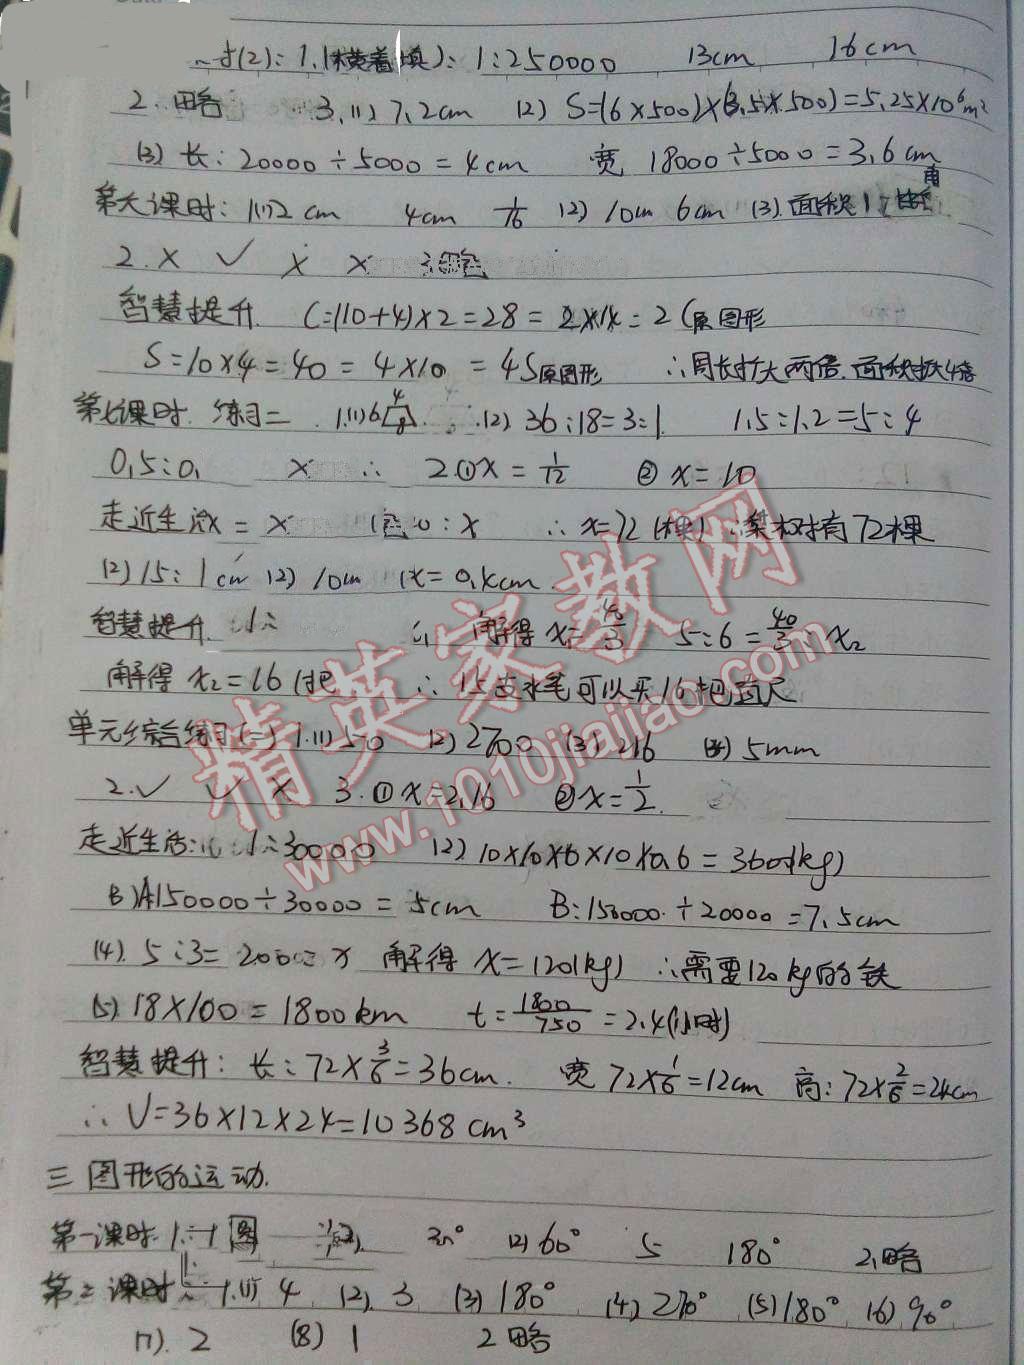 (2): 1.(横着填): 1:250000 13cm 16cm
2. 略 3.(1) 7.2cm (2) S=(6×500)×(3.5×500)=5.25×10⁶m²
(3) 长: 20000÷5000=4cm 宽 18000÷5000=3.6cm
第六课时: 1(1)2cm 4cm 1/16 (2) 10cm 6cm (3). 面积
2. × ✓ × × 3略
智慧提升. C=(10+4)×2=28=2×14=2C原图形
S=10×4=40=4×10=4S原图形 ∴周长扩大两倍.面积扩大4倍
第七课时. 练习二 1.(1) 6 4 8 (2) 36:18=3:1 1.5:1.2=5:4
0.5:0. × ∴ 2①x=1/12 ②x=10
走近生活 x= x :x ∴x=72(棵) ∴梨树有72棵
(2) 15:1cm (2) 10cm x=0.4cm
智慧提升. 解得 x=40/3 5:6=40/3:x₂
解得 x₂=16(把 ∴15支水笔可以买16把直尺
单元综合练习(二) 1.(1) 50 (2) 2700 (3) 216 (4) 5mm
2.✓ ✓ × 3.①x=2.16 ②x=1/2.
走近生活: 1:30000 (2) 10×10×6×10×0.6=360(kg)
B)A150000÷30000=5cm B:150000÷20000=7.5cm
(4). 5:3=200:x 解得 x=120(kg) ∴需要120kg的铁
(5) 18×100=1800km t=1800/750=2.4(小时)
智慧提升: 长:72×3/6=36cm. 宽 72×1/6=12cm 高:72×2/6=24cm
∴V=36×12×24=10368cm³
三 图形的运动.
第一课时. 1. 图 30° (2) 60° 5 180° 2.略
第2课时 1.(1) 4 (2). 3 (3) 180° (4) 270° (5) 180° (6) 90°
(7). 2 (8) 1 2 略
精英家教网
www.1010jiajiao.com